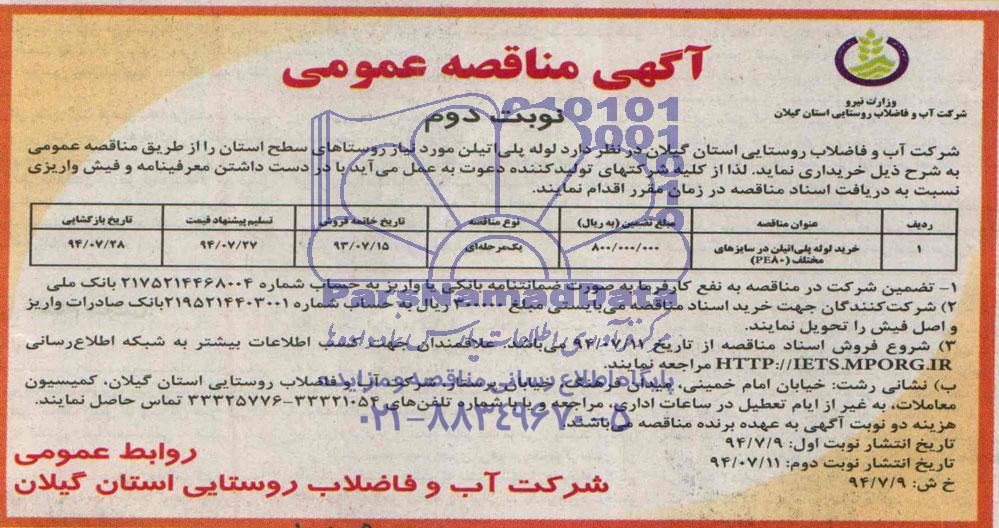 آگهی مناقصه عمومی
وزارت نیرو
شرکت آب و فاضلاب روستایی استان گیلان
نوبت دوم
شرکت آب و فاضلاب روستایی استان گیلان در نظر دارد لوله پلی‌اتیلن مورد نیاز روستاهای سطح استان را از طریق مناقصه عمومی
به شرح ذیل خریداری نماید. لذا از کلیه شرکتهای تولیدکننده دعوت به عمل می‌آید با در دست داشتن معرفینامه و فیش واریزی
نسبت به دریافت اسناد مناقصه در زمان مقرر اقدام نمایند.
ردیف عنوان مناقصه مبلغ تضمین (به ریال) نوع مناقصه تاریخ خاتمه فروش تسلیم پیشنهاد قیمت تاریخ بازگشایی
۱ خرید لوله پلی‌اتیلن در سایزهای ۸۰۰/۰۰۰/۰۰۰ یک‌مرحله‌ای ۹۳/۰۷/۱۵ ۹۴/۰۷/۲۷ ۹۴/۰۷/۲۸
مختلف (PE۸۰)
۱- تضمین شرکت در مناقصه به نفع کارفرما به صورت ضمانتنامه بانکی یا واریز به حساب شماره ۲۱۷۵۲۱۴۴۶۸۰۰۴ بانک ملی
۲) شرکت‌کنندگان جهت خرید اسناد مناقصه می‌بایستی مبلغ ریال به حساب شماره ۲۱۹۵۲۱۴۴۰۳۰۰۱بانک صادرات واریز
و اصل فیش را تحویل نمایند.
۳) شروع فروش اسناد مناقصه از تاریخ ۹۴/۰۷/۱۱ می‌باشد. علاقمندان جهت کسب اطلاعات بیشتر به شبکه اطلاع‌رسانی
HTTP://IETS.MPORG.IR مراجعه نمایند.
ب) نشانی رشت: خیابان امام خمینی، میدان فرهنگ، خیابان پرستار، شرکت آب و فاضلاب روستایی استان گیلان، کمیسیون
معاملات، به غیر از ایام تعطیل در ساعات اداری، مراجعه و یا با شماره تلفن‌های ۳۳۳۲۱۰۵۴-۳۳۳۲۵۷۷۶ تماس حاصل نمایند.
هزینه دو نوبت آگهی به عهده برنده مناقصه می‌باشد.
تاریخ انتشار نوبت اول: ۹۴/۷/۹
تاریخ انتشار نوبت دوم: ۹۴/۰۷/۱۱
خ ش: ۹۴/۷/۹
روابط عمومی
شرکت آب و فاضلاب روستایی استان گیلان
ParsNamadData
پایگاه اطلاع رسانی مناقصه و مزایده
۰۲۱-۸۸۳۴۹۶۷۰-۵